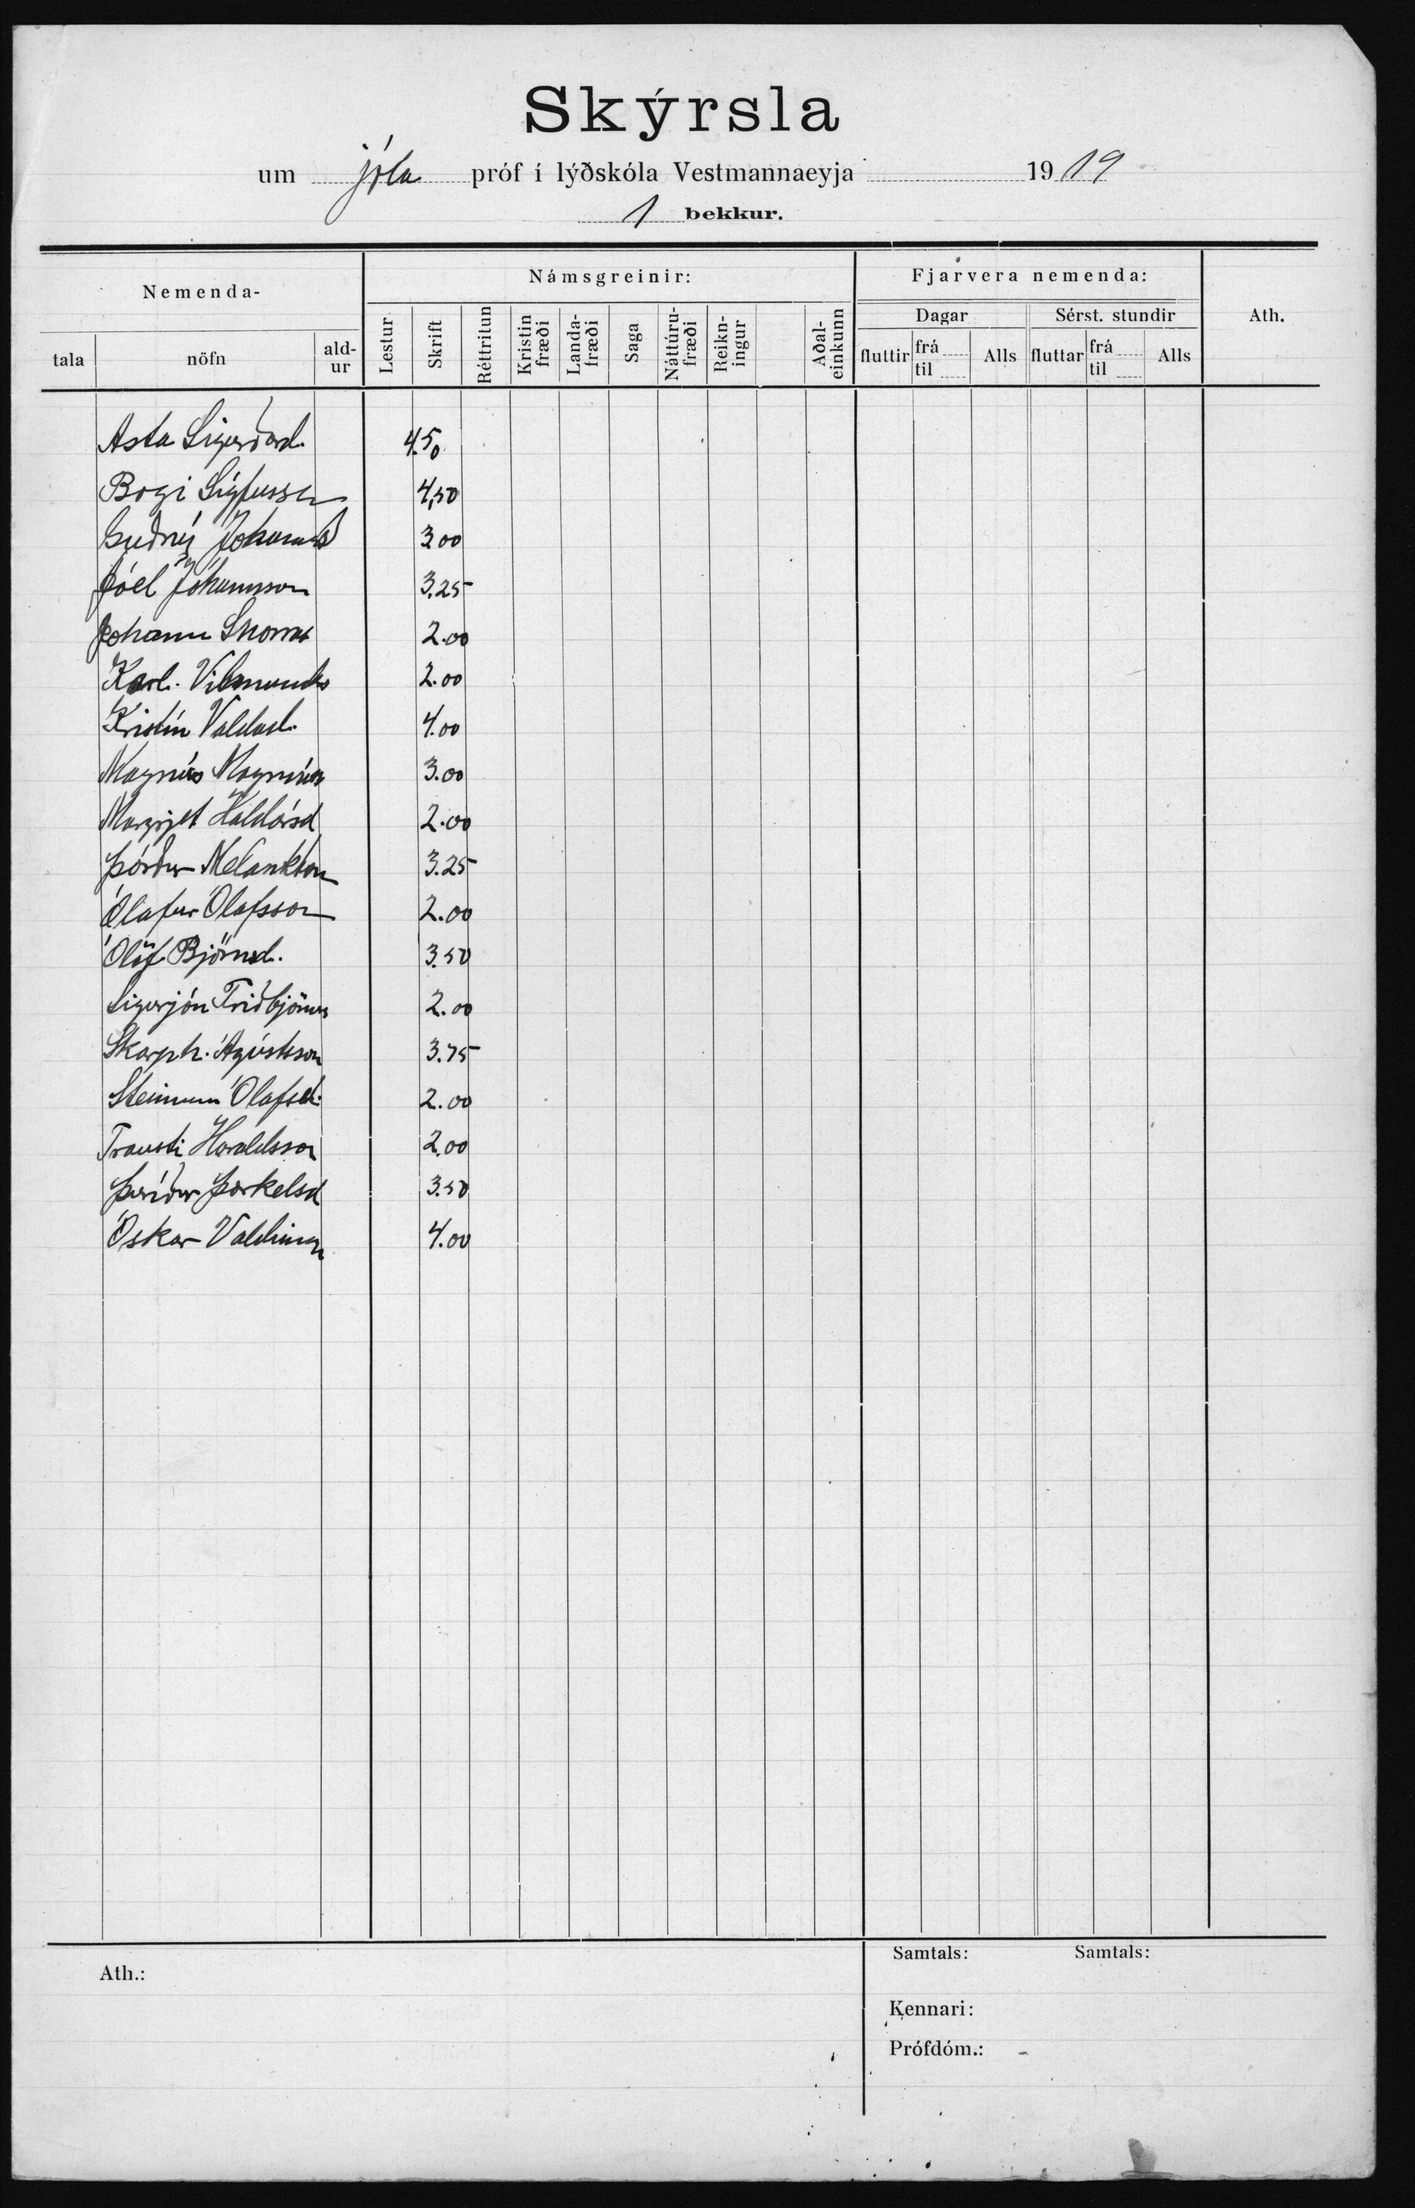 Skýrsla
um jóla próf í lýðskóla Vestmannaeyja 1919
1 bekkur.
Nemenda- Námsgreinir: Fjarvera nemenda: Ath.
tala nöfn ald-ur Lestur Skrift Réttritun Kristin fræði Landa-fræði Saga Náttúru-fræði Reikn-ingur Aðal-einkunn Dagar Sérst. stundir
fluttir frá til Alls fluttar frá til Alls
Asta Sigurðard. 4.50
Bogi Sigfusson 4,50
Guðný Johannsd 3.00
Jóel Jóhannsson 3.25
Johann Snorras 2.00
Karl. Vilmunds 2.00
Kristín Valdad. 4.00
Magnús Magnúss 3.00
Margrjet Halldórsd 2.00
Þórður Melankton 3.25
Ólafur Olafsson 2.00
Ólöf Björnsd. 3.50
Sigurjón Friðbjörns 2.00
Skarph. Ágústsson 3.75
Steinunn Olafsd. 2.00
Trausti Haraldsson 2.00
Þuríður Þorkelsd 3.50
Óskar 4.00
Ath.:
Samtals: Samtals:
Kennari:
Prófdóm.: